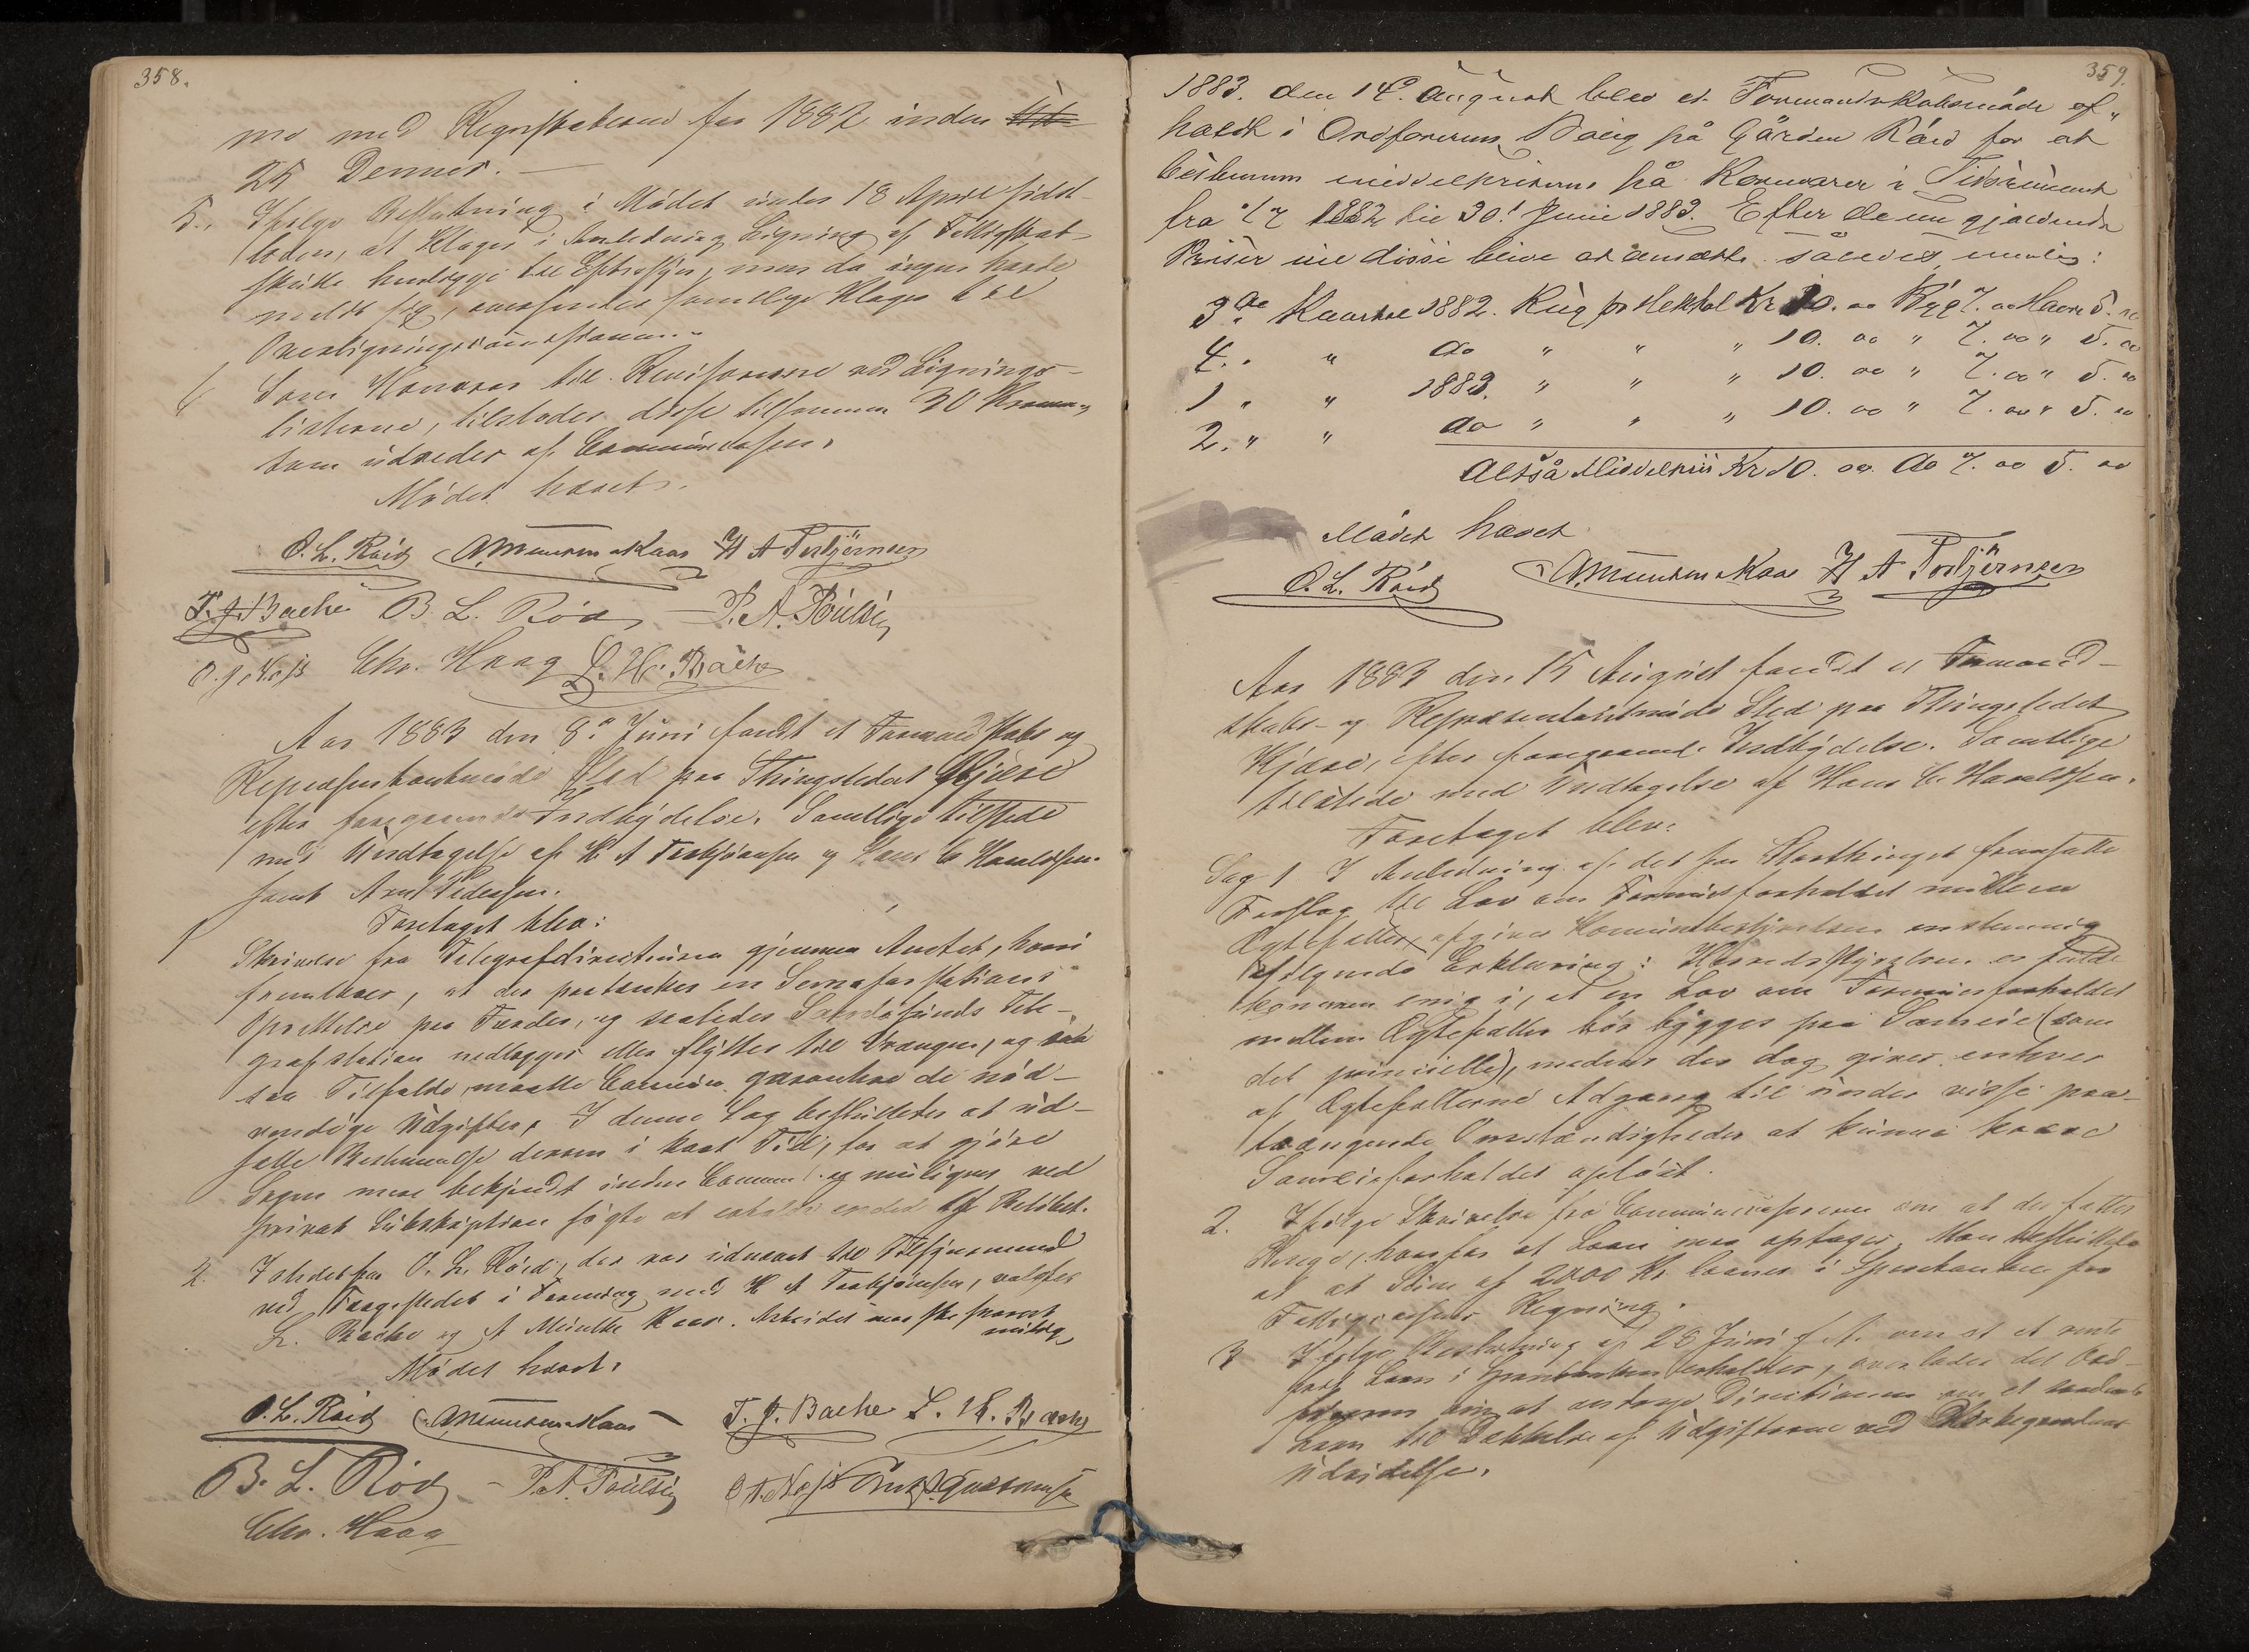 358.
me med Regnskaberne for 1882 inden
25 Dennes. —
5. Ifølge Beslutning i Mødet under 18 April sidst-
leden, at Klager i Anledning Ligning af Fattigskat
skulde henlægges til Eftersyn, men da ingen havde
meldt sig, oversendes samtlige Klager til
Overligningscommissionen.
6 Som Honorar til Revisorerne ved Lignings-
listerne, tilstodes disse tilsammen 30 Kroner,
som udredes af Communecassen.
Mødet hævet.
O. L. Röed A. Muenken Kaas H A Torbjörnsen
T. J. Bache B. L. Röd P. A. Poulsen
Chr. Haag L. H. Bache
Aar 1883 den 8de Juni fandt et Formandskabs og
Repræsentantmøde Sted paa Thingstedet Kjære
efter foregaaende Indbydelse. Samtlige tilstede
med Undtagelse af H A Torbjørnsen og Hans C Haraldsen
samt Arnt Pedersen.
Foretaget blev:
1 Skrivelse fra Telegrafdirecteuren gjennem Amtet, hvori
fremhæves, at der paatænkes en Semaforstations
Oprettelse paa Færder, og saaledes Sandøsunds Tele-
grafstation nedlægges eller flyttes til Vrængen, og
saa Tilfælde, maatte Communen garantere de nød-
vendige Udgifter. I denne Sag besluttedes at ud-
sætte Bestemmelse derom i kort Tid, for at gjøre
Sagen mere bekjendt inden Commun. og muligens ved
privat Subskription søgte at erholde endel af Beløbet.
2. Istedetfor O. L. Röed, der var udnævnt til Tilsynsmand
ved Færgestedet i Forening med H A Torbjørnsen, valgtes
L. Bache og A Muenke Kaas. Arbeidet maa ske snarest
muligt
Mødet hævet.
O. L. Röed A. Muenken Kaas T. J. Bache L. H. Bache
B. L. Röd - P. A. Poulsen
Chr. Haag
359.
1883. den 14de August blev et Formandskabsmöde af„
holdt i Ordförerens Bolig på Gården Röed for at
bestemme middelpriserne på Kornvarer i Tidsrummet
fra 1/7 1882 til 30te Juni 1883. Efter de nu gjældende
Priser vil disse blive at ansætte således, nemlig:
3de Kvartal 1882. Rug pr Hektol Kr 10. oo Byg 7. oo Havre 5. oo
4. „ „ do „ „ „ 10. oo „ 7. oo „ 5. oo
1 „ „ 1883. „ „ „ 10. oo „ 7. oo „ 5. oo
2. „ „ do „ „ „ 10. oo „ 7. oo „ 5. oo
Altså Middelpris Kr 10. oo. do 7. oo 5. oo
Mödet hævet
O. L. Röed A. Muenken Kaas H A Torbjörnsen
Aar 1883 den 15 August fandt et Formand-
skabs- og Repræsentantmøde Sted paa Thingstedet
Kjære, efter foregaaende Indbydelse. Samtlige
tilstede med Undtagelse af Hans C. Haraldsen.
Foretaget blev:
Sag 1 I Anledning af det for Storthinget fremsatte
Forslag til Lov om Formuesforholdet mellem
Ægtefæller, afgiver Kommunbestyrelsen enstemmig
følgende Erklæring: Herredsstyrelsen er fuldt
kommen enig i, at en Lov om Formuesforholdet
mellem Ægtefæller bør bygges paa Sameie (som
det principielle), medens der dog gives enhver
af Ægtefællerne Adgang til under visse paa-
trængende Omstændigheder at kunne kræve
Sameieforholdet opløst.
2. Ifølge Skrivelse fra Communecassereren om at der fattes
Penge, hvorfor et Laan maa optages. Man besluttede
at at Sum af 2000 Kr laanes i Sparebanken for
Fattigcassens Regning.
3 Ifølge Beslutning af 28 Juni d. A. om at et rente
frit Laan i Sparebanken erholdes, overlades det Ord-
føreren at andrage Direktionen om et saadant
Laan til Dækkelse af Udgifterne ved Kirkegaardens
Udvidelse.